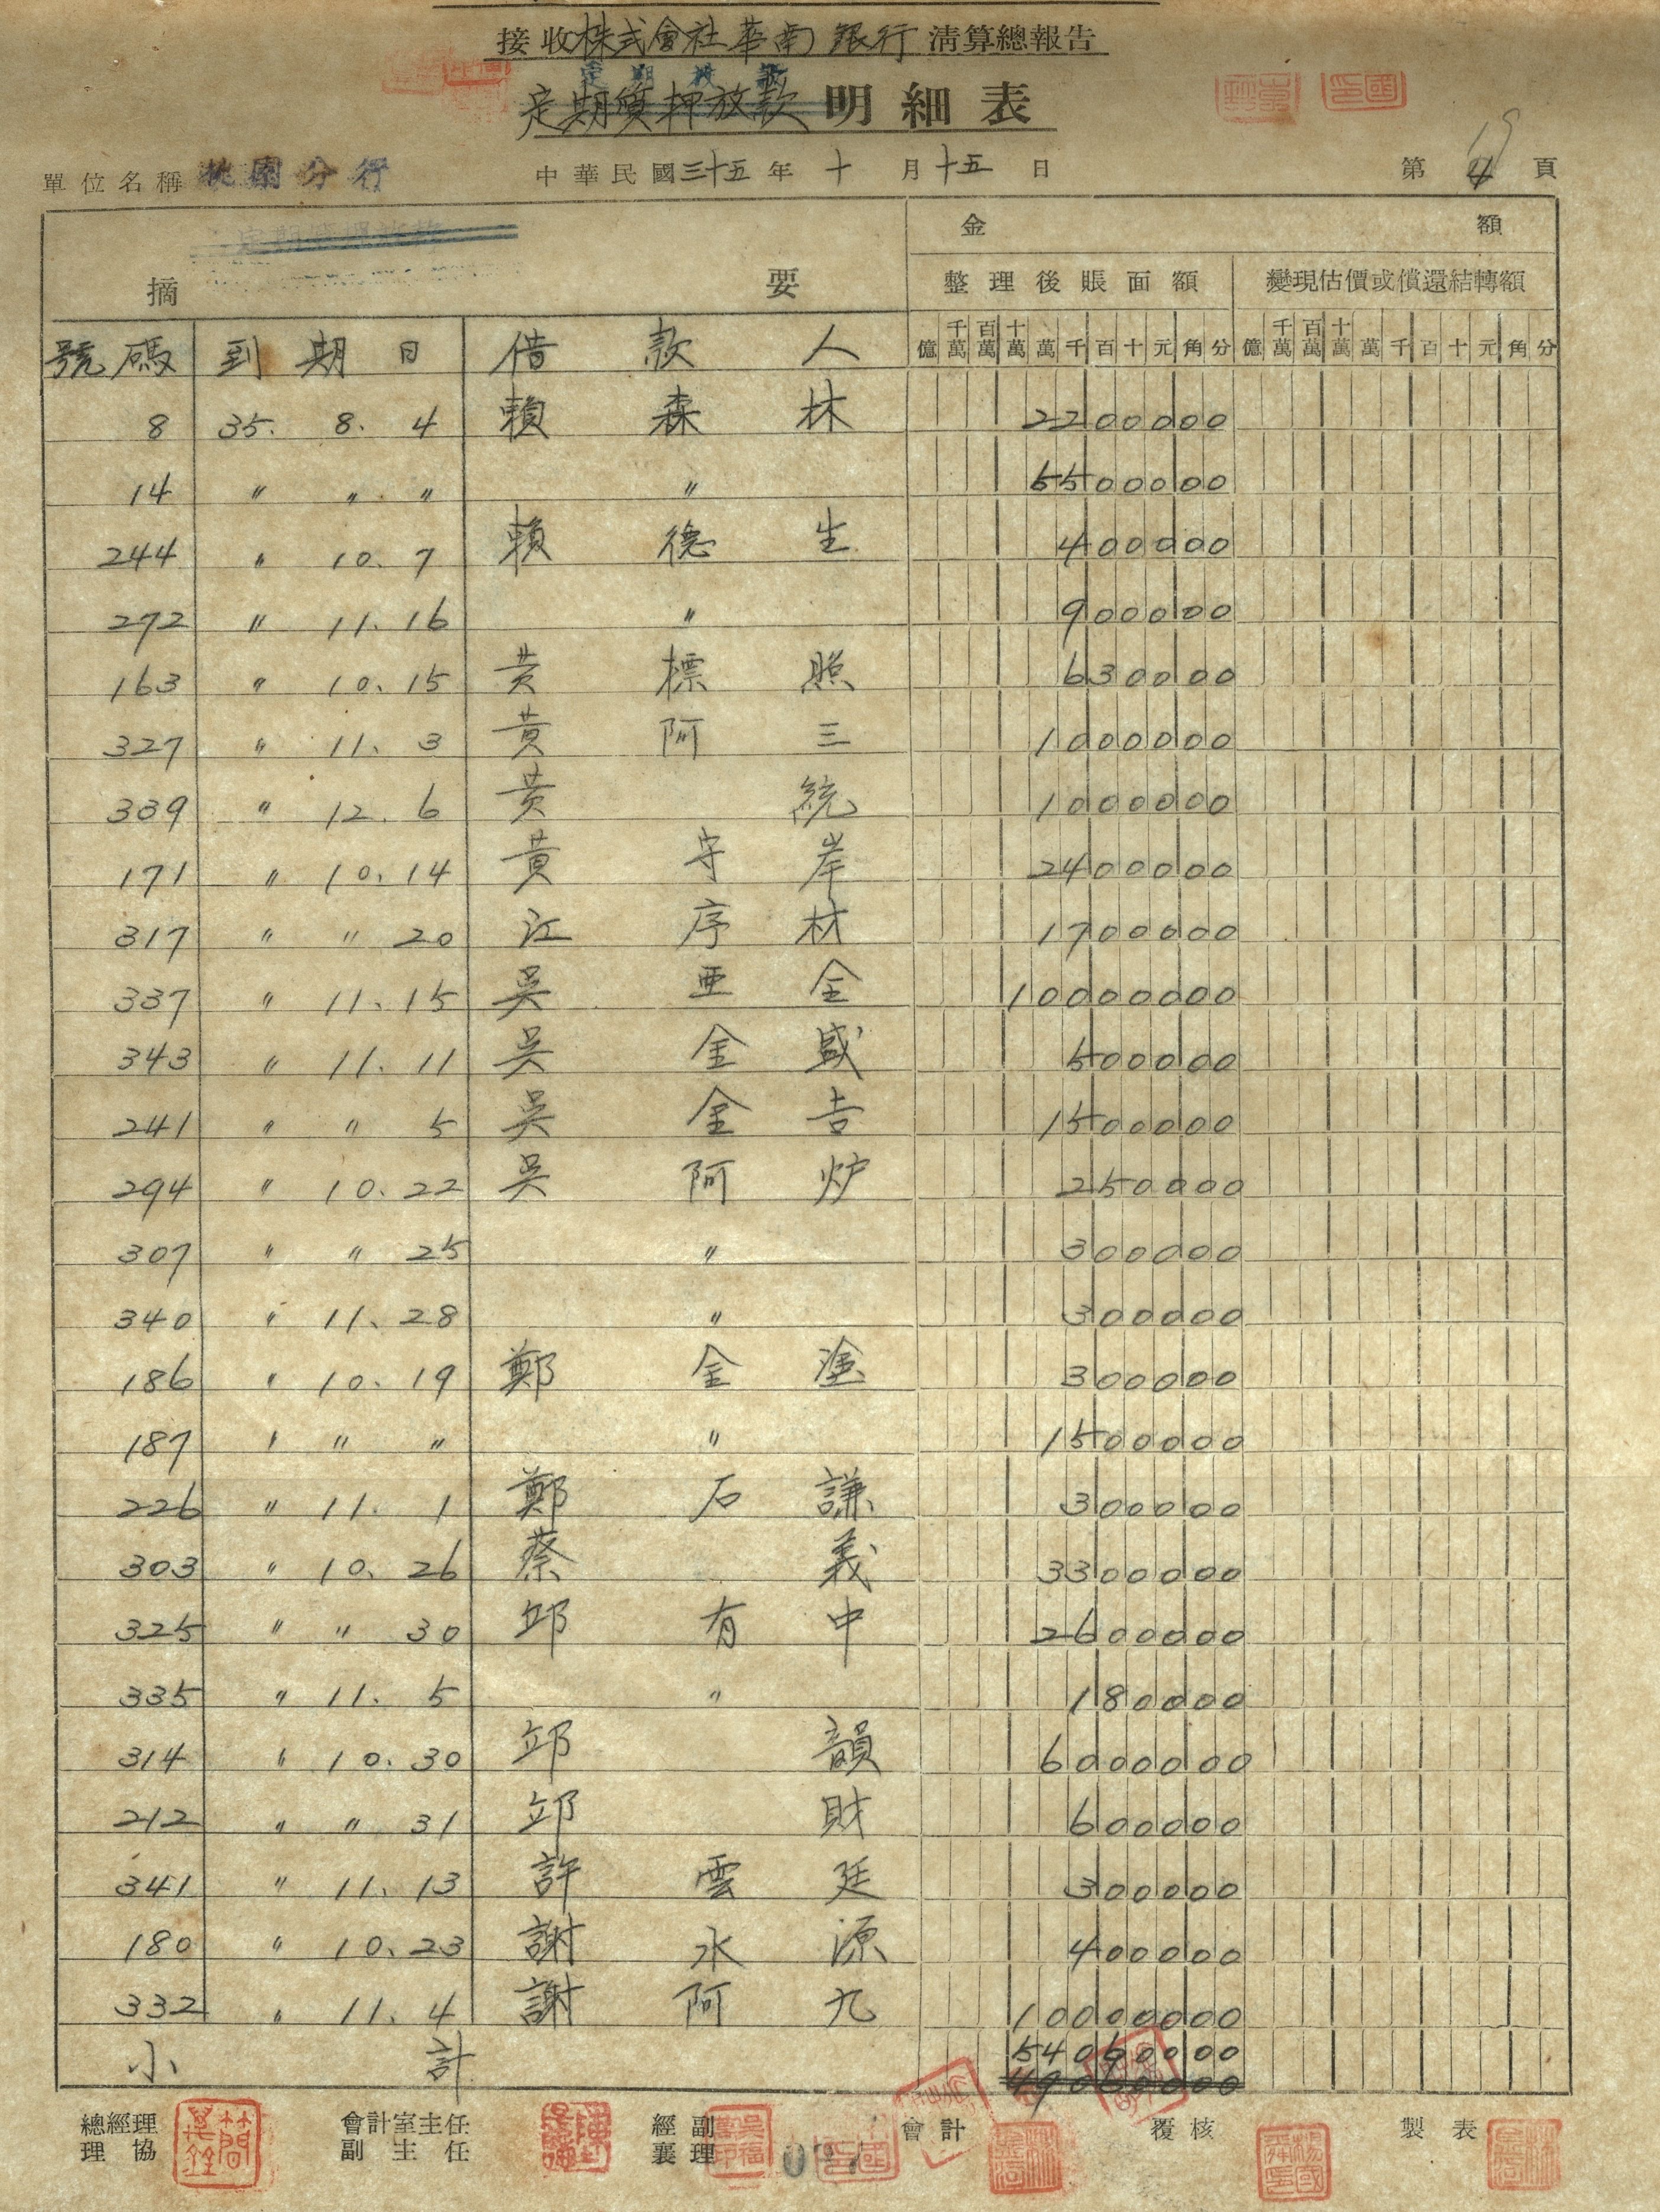 接收株式會社華南銀行清算總報告
定期放款
定期質押放款明細表
單位名稱 桃園分行 中華民國三十五年十月十五日 第19頁
金額
摘要 整理後賬面額 變現估價或償還結轉額
號碼 到期日 借款人 億 千萬 百萬 十萬 萬 千 百 十 元 角 分 億 千萬 百萬 十萬 萬 千 百 十 元 角 分
8 35. 8. 4 賴森林 2200000
14 〃 〃 〃 〃 5500000
244 〃 10. 7 賴德生 400000
272 〃 11. 16 〃 900000
163 〃 10. 15 黃標照 630000
327 〃 11. 3 黃阿三 1000000
339 〃 12. 6 黃統 1000000
171 〃 10. 14 黃守岸 2400000
317 〃 〃 20 江序材 1700000
337 〃 11. 15 吳亜全 10000000
343 〃 11. 11 吳金盛 500000
241 〃 〃 5 吳金吉 1500000
294 〃 10. 22 吳阿炉 250000
307 〃 〃 25 〃 300000
340 〃 11. 28 〃 300000
186 〃 10. 19 鄭金塗 300000
187 〃 〃 〃 〃 1500000
226 〃 11. 1 鄭石謙 300000
303 〃 10. 26 蔡義 3300000
325 〃 〃 30 邱有中 2600000
335 〃 11. 5 〃 180000
314 〃 10. 30 邱韻 6000000
212 〃 〃 31 邱財 600000
341 〃 11. 13 許雲廷 300000
180 〃 10. 23 謝水源 400000
332 〃 11. 4 謝阿九 10000000
小計 54060000
49060000
總經理 會計室主任 經副 會計 覆核 製表
理協 副主任 襄理